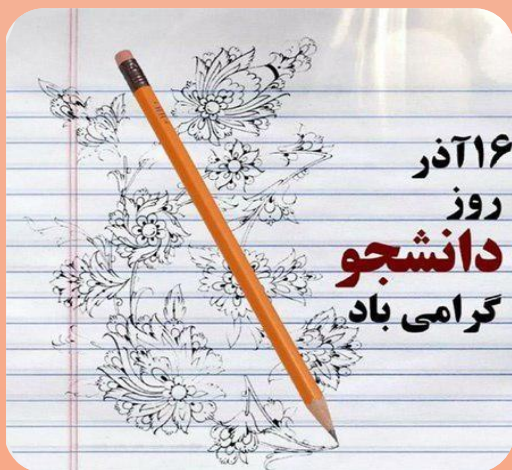 ۱۶آذر
روز
دانشجو
گرامی باد